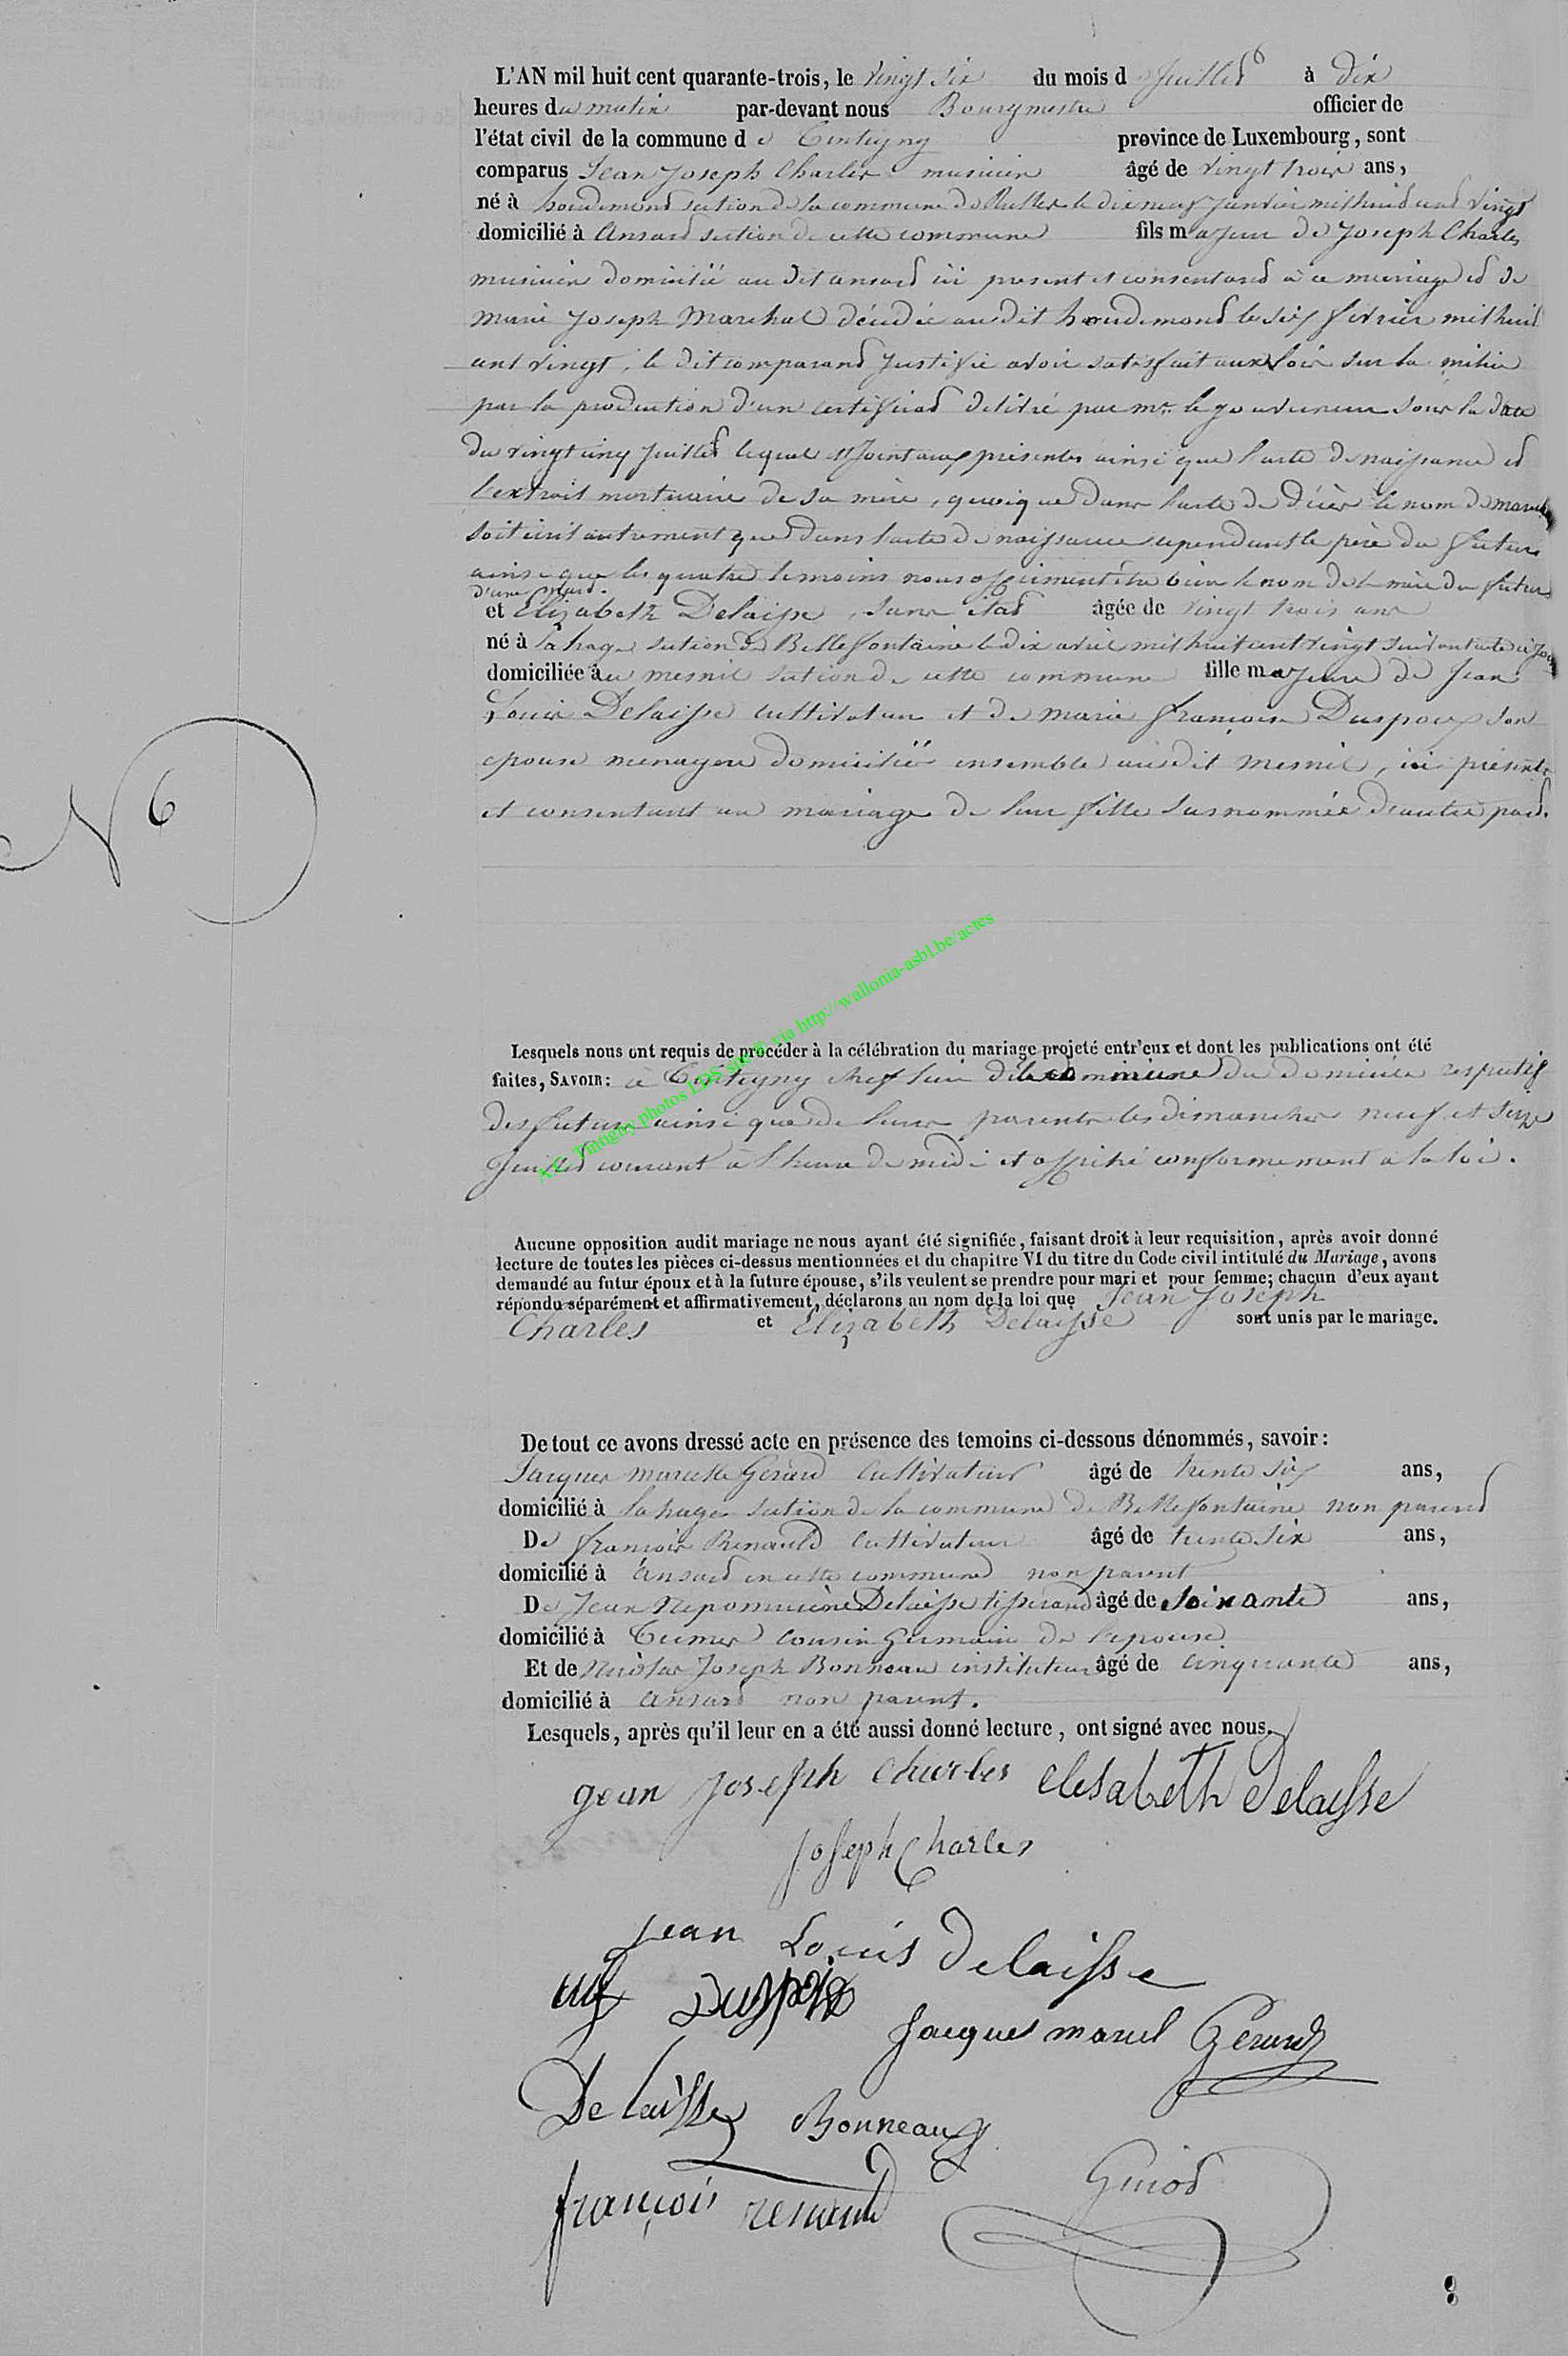 L'AN mil huit cent quarante-trois, le vingt six du mois d e Juillet à dix
heures du matin par-devant nous Bourgmestre officier de
l'état civil de la commune d e Tintigny province de Luxembourg, sont
comparus Jean Joseph Charles musicien âgé de vingt trois ans,
né à houdemont section de la commune de Rulles le dix neuf Janvier mil huit cent vingt
domicilié à Ansart section de cette commune fils majeur de Joseph Charles
musicien domicilié au dit ansart ici present et consentant à ce mariage et de
Marie Joseph Marchal décédée au dit houdemont le six fevrier mil huit
cent vingt, le dit comparant justifie avoir satisfait aux loix sur la milice
par la production d'un certificat délivré par mr. le gouverneur sous la date
du vingt cinq Juillet lequel est joint aux présentes ainsi que l'acte de naissance et
l'extrait mortuaire de sa mère, quoique dans l'acte de décès le nom de
soit écrit autrement que dans l'acte de naissance cependant le père du futur
ainsi que les quatre temoins nous affirment être bien le nom de la mère du futur
d'une part.
et Elizabeth Delaisse, sans état âgée de vingt trois ans
né à Lahage section de Bellefontaine le dix avril mil huit cent vingt suivant acte ci
domiciliée à u mesnil section de cette commune fille majeure de Jean
Louis Delaisse cultivateur et de marie françoise Duspoux son
epouse menagere domiciliés ensemble au dit mesnil, ici présents
et consentant au mariage de leur fille susnommée d'autre part.
N 6
Lesquels nous ont requis de procéder à la célébration du mariage projeté entr'eux et dont les publications ont été
faites, SAVOIR: à Tintigny chef lieu de la commune du domicile respectif
des futurs ainsi que de leurs parents les dimanches neuf et seize
Juillet courant à l'heure de midi et affiché conformement à la loi.
A.C. Tintigny photos LDS site @ via http://wallonia-asbl.be/actes
Aucune opposition audit mariage ne nous ayant été signifiée, faisant droit à leur requisition, après avoir donné
lecture de toutes les pièces ci-dessus mentionnées et du chapitre VI du titre du Code civil intitulé du Mariage, avons
demandé au futur époux et à la future épouse, s'ils veulent se prendre pour mari et pour femme; chacun d'eux ayant
répondu séparément et affirmativement, déclarons au nom de la loi que Jean Joseph
Charles et Elizabeth Delaisse sont unis par le mariage.
De tout ce avons dressé acte en présence des temoins ci-dessous dénommés, savoir:
Jacques Marcelle Gérard Cultivateur âgé de trente six ans,
domicilié à Lahage section de la commune de Bellefontaine non parent
De françois Renauld Cultivateur âgé de trente six ans,
domicilié à Ansart en cette commune non parent
De Jean Nepomucène Delaisse tisserand âgé de soixante ans,
domicilié à cousin Germain de l'epouse
Et de Nicolas Joseph Bonneau instituteur âgé de cinquante ans,
domicilié à Ansart non parent.
Lesquels, après qu'il leur en a été aussi donné lecture, ont signé avec nous.
gean joseph charles elesabeth delaisse
joseph Charles
jean Louis delaisse
jacques marcel Gerard
Delaisse Bonneau
françois renauld